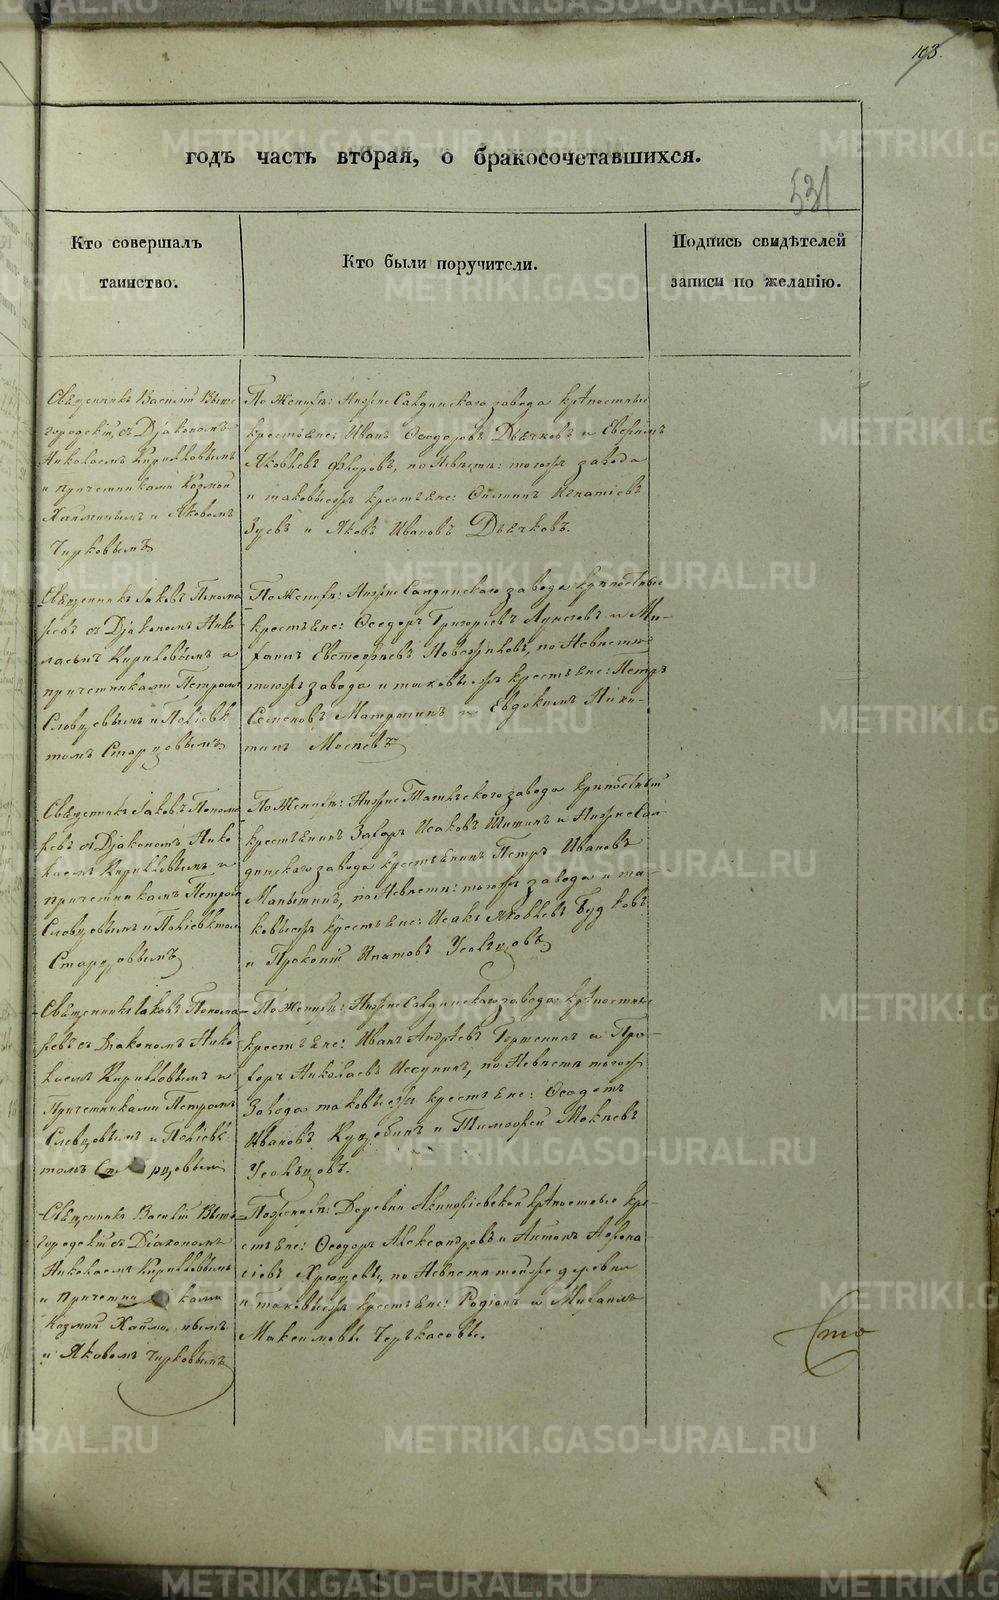 103.
531
годъ часть вторая, о бракосочетавшихся.
Кто совершалъ
таинство.
Кто были поручители.
Подпись свидѣтелей
записи по желанію.
Священникъ Василій Выше
городскій съ Діакономъ
Николаемъ Кирилловымъ
и причетниками Козмой
и Яковомъ
Чирковымъ
По женихѣ: Нижне Салдинскаго завода крѣпостные
крестьяне: Иванъ Ѳеодоровъ Дьячковъ и
Яковлевъ Флоровъ, по невѣстѣ: тогожъ завода
и таковыежъ крестьяне: Филиппъ Игнатіевъ
Зуевъ и Яковъ Ивановъ Дьячковъ.
Священникъ Іаковъ Понома
ревъ съ Діакономъ Нико
лаемъ Кирилловымъ и
причетниками Петромъ
Словцовымъ и Поліевк
томъ Старцовымъ
По женихѣ: Нижне Салдинскаго завода крѣпостные
крестьяне: Ѳеодоръ Григоріевъ и Ми-
хаилъ по невѣстѣ
тогожъ завода и таковыежъ крестьяне: Петръ
Семеновъ и Евдокимъ Ники-
тинъ
Священникъ Іаковъ Понома
ревъ съ Діакономъ Нико
лаемъ Кирилловымъ и
причетниками Петромъ
Словцовымъ и Поліевктомъ
Старцовымъ
По женихѣ: Нижне Тагильскаго завода крѣпостный
крестьянинъ Захаръ Исаковъ Шитинъ и Нижне Сал
динскаго завода крестьянинъ Петръ Ивановъ
по невѣстѣ: тогожъ завода и та-
ковыежъ крестьяне: Исакъ Яковлевъ Будковъ
и Прокопій Ипатовъ Усольцовъ
Священникъ Іаковъ Понома
ревъ съ Діакономъ Нико
лаемъ Кирилловымъ и
Причетниками Петромъ
Словцовымъ и Поліевк
томъ Старцовымъ
По женихѣ: Нижне Салдинскаго завода крѣпостные
крестьяне: Иванъ Андреевъ и Про
хоръ Николаевъ Исупинъ, по невѣстѣ тогожъ
завода таковыежъ крестьяне: Ѳеодотъ
Ивановъ и Тимофей Мокѣевъ
Усольцовъ.
Священникъ Василій Выше
городскій съ Діакономъ
Николаемъ Кирилловымъ
и причетниками
Козмой
и Яковомъ Чирковымъ
По женихѣ: Деревни Акинфіевской крѣпостные кре-
стьяне: Ѳеодоръ Александровъ и Антонъ Аѳона
сіевъ Хрущевы, по невѣстѣ тойже деревни
и таковыежъ крестьяне: Родіонъ и Михаилъ
Максимовы Черкасовы.
Сто
METRIKI.GASO-URAL.RU